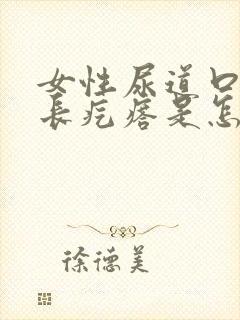 女性尿道口
长疙瘩是怎
徐德美